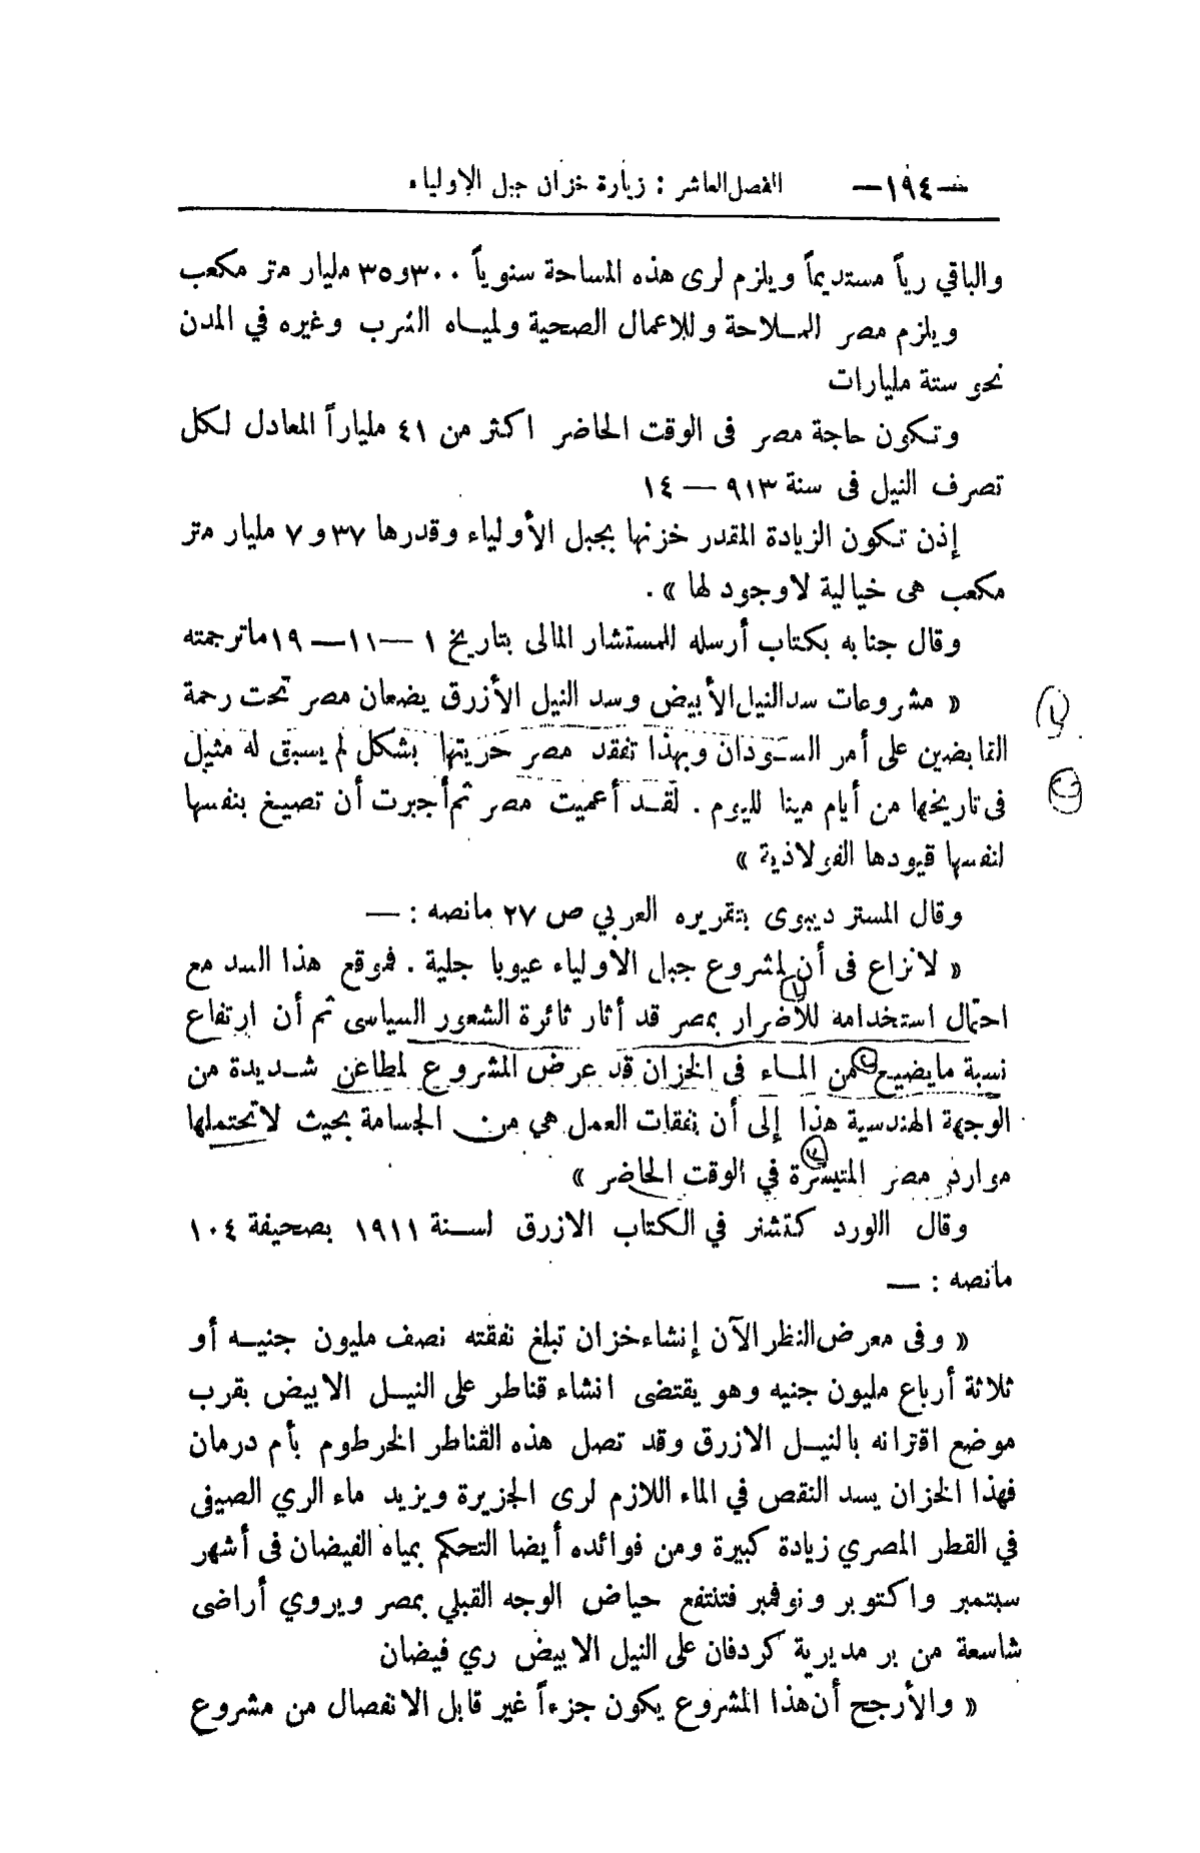 —١٩٤— الفصل العاشر : زيارة خزان جبل الاولياء
والباقي رياً مستديماً ويلزم لرى هذه المساحة سنوياً ٣٠٠و٣٥ مليار متر مكعب
ويلزم مصر الملاحة وللاعمال الصحية ولمياه الشرب وغيره في المدن
نحو ستة مليارات
وتكون حاجة مصر فى الوقت الحاضر اكثر من ٤١ ملياراً المعادل لكل
تصرف النيل فى سنة ٩١٣ — ١٤
إذن تكون الزيادة المقدر خزنها بجبل الأولياء وقدرها ٣٧و٧ مليار متر
مكعب هى خيالية لاوجود لها » .
وقال جنابه بكتاب أرسله للمستشار المالى بتاريخ ١ —١١— ١٩ماترجمته
« مشروعات سدالنيل الأبيض وسد النيل الأزرق يضعان مصر تحت رحمة
القابضين على أمر السودان وبهذا تفقد مصر حريتها بشكل لم يسبق له مثيل
فى تاريخها من أيام مينا لليوم . لقد أعميت مصر ثم أجبرت أن تصيغ بنفسها
لنفسها قيودها الفولاذية »
وقال المستر ديبوى بتقريره العربي ص ٢٧ مانصه : —
« لانزاع فى أن لمشروع جبل الاولياء عيوبا جلية . فموقع هذا السد مع
احتمال استخدامه للأضرار بمصر قد أثار ثائرة الشعور السياسى ثم أن ارتفاع
نسبة مايضيع من الماء فى الخزان قد عرض المشروع لمطاعن شديدة من
الوجهة الهندسية هذا إلى أن نفقات العمل هي من الجسامة بحيث لاتحتملها
موارد مصر المتيسرة في الوقت الحاضر »
وقال اللورد كتشنر في الكتاب الازرق لسنة ١٩١١ بصحيفة ١٠٤
مانصه : —
« وفى معرض النظر الآن إنشاء خزان تبلغ نفقته نصف مليون جنيه أو
ثلاثة أرباع مليون جنيه وهو يقتضى انشاء قناطر على النيل الابيض بقرب
موضع اقترانه بالنيل الازرق وقد تصل هذه القناطر الخرطوم بأم درمان
فهذا الخزان يسد النقص في الماء اللازم لرى الجزيرة ويزيد ماء الري الصيفى
في القطر المصري زيادة كبيرة ومن فوائده أيضا التحكم بمياه الفيضان فى أشهر
سبتمبر واكتوبر ونوفمبر فتنتفع حياض الوجه القبلي بمصر ويروي أراضى
شاسعة من بر مديرية كردفان على النيل الابيض ري فيضان
« والأرجح أن هذا المشروع يكون جزءاً غير قابل الانفصال من مشروع